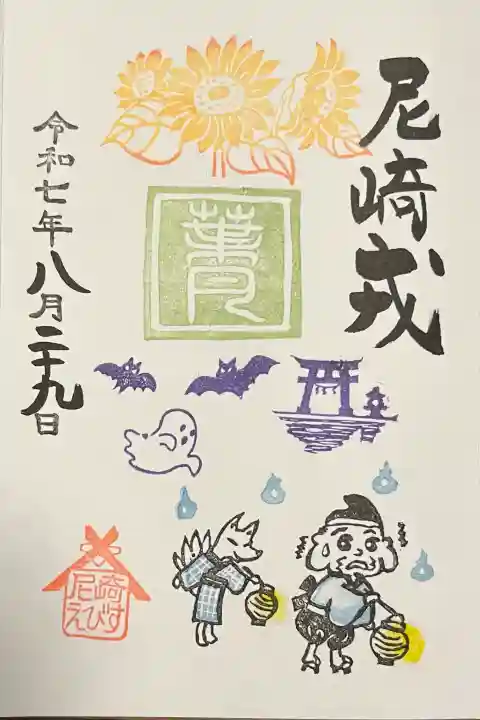 尼崎戎
葉月
令和七年八月二十九日
尼崎
えびす